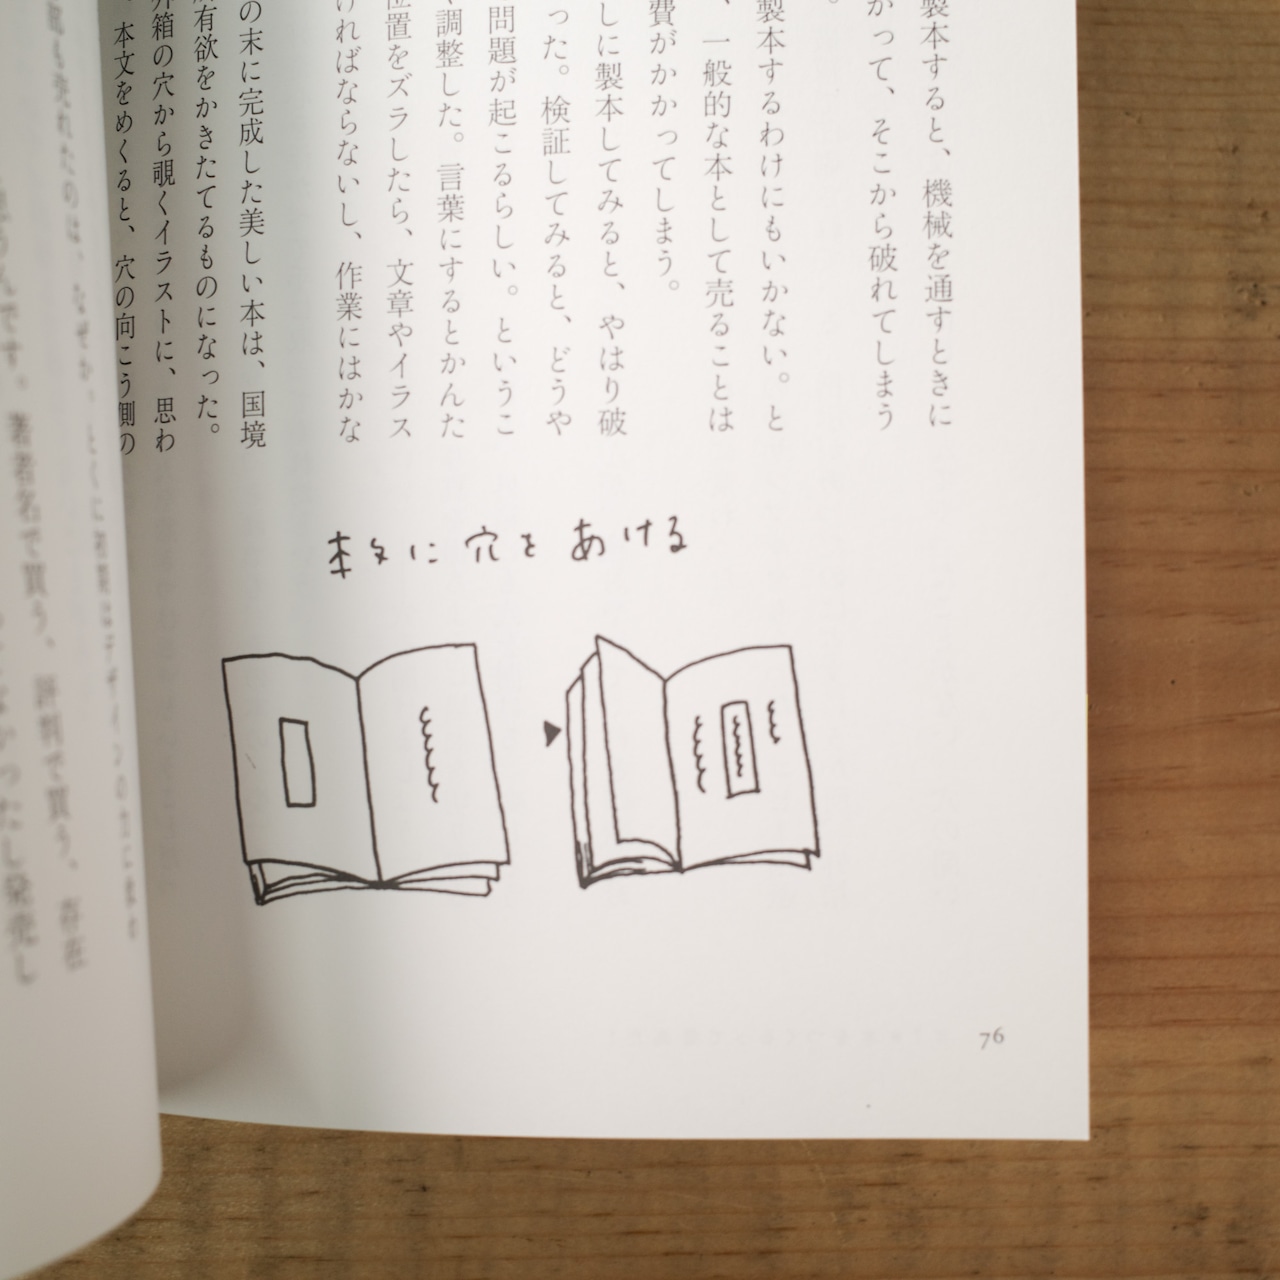 製本すると、機械を通すときに
かって、そこから破れてしまう
。
製本するわけにもいかない。と
、一般的な本として売ることは
費がかかってしまう。
しに製本してみると、やはり破
った。検証してみると、どうや
問題が起こるらしい。というこ
調整した。言葉にするとかんた
位置をズラしたら、文章やイラス
ければならないし、作業にはかな
の末に完成した美しい本は、国境
所有欲をかきたてるものになった。
外箱の穴から覗くイラストに、思わ
本文をめくると、穴の向こう側の
本文に穴をあける
76
著者名で買う、評判で買う。存在
かったし発売し